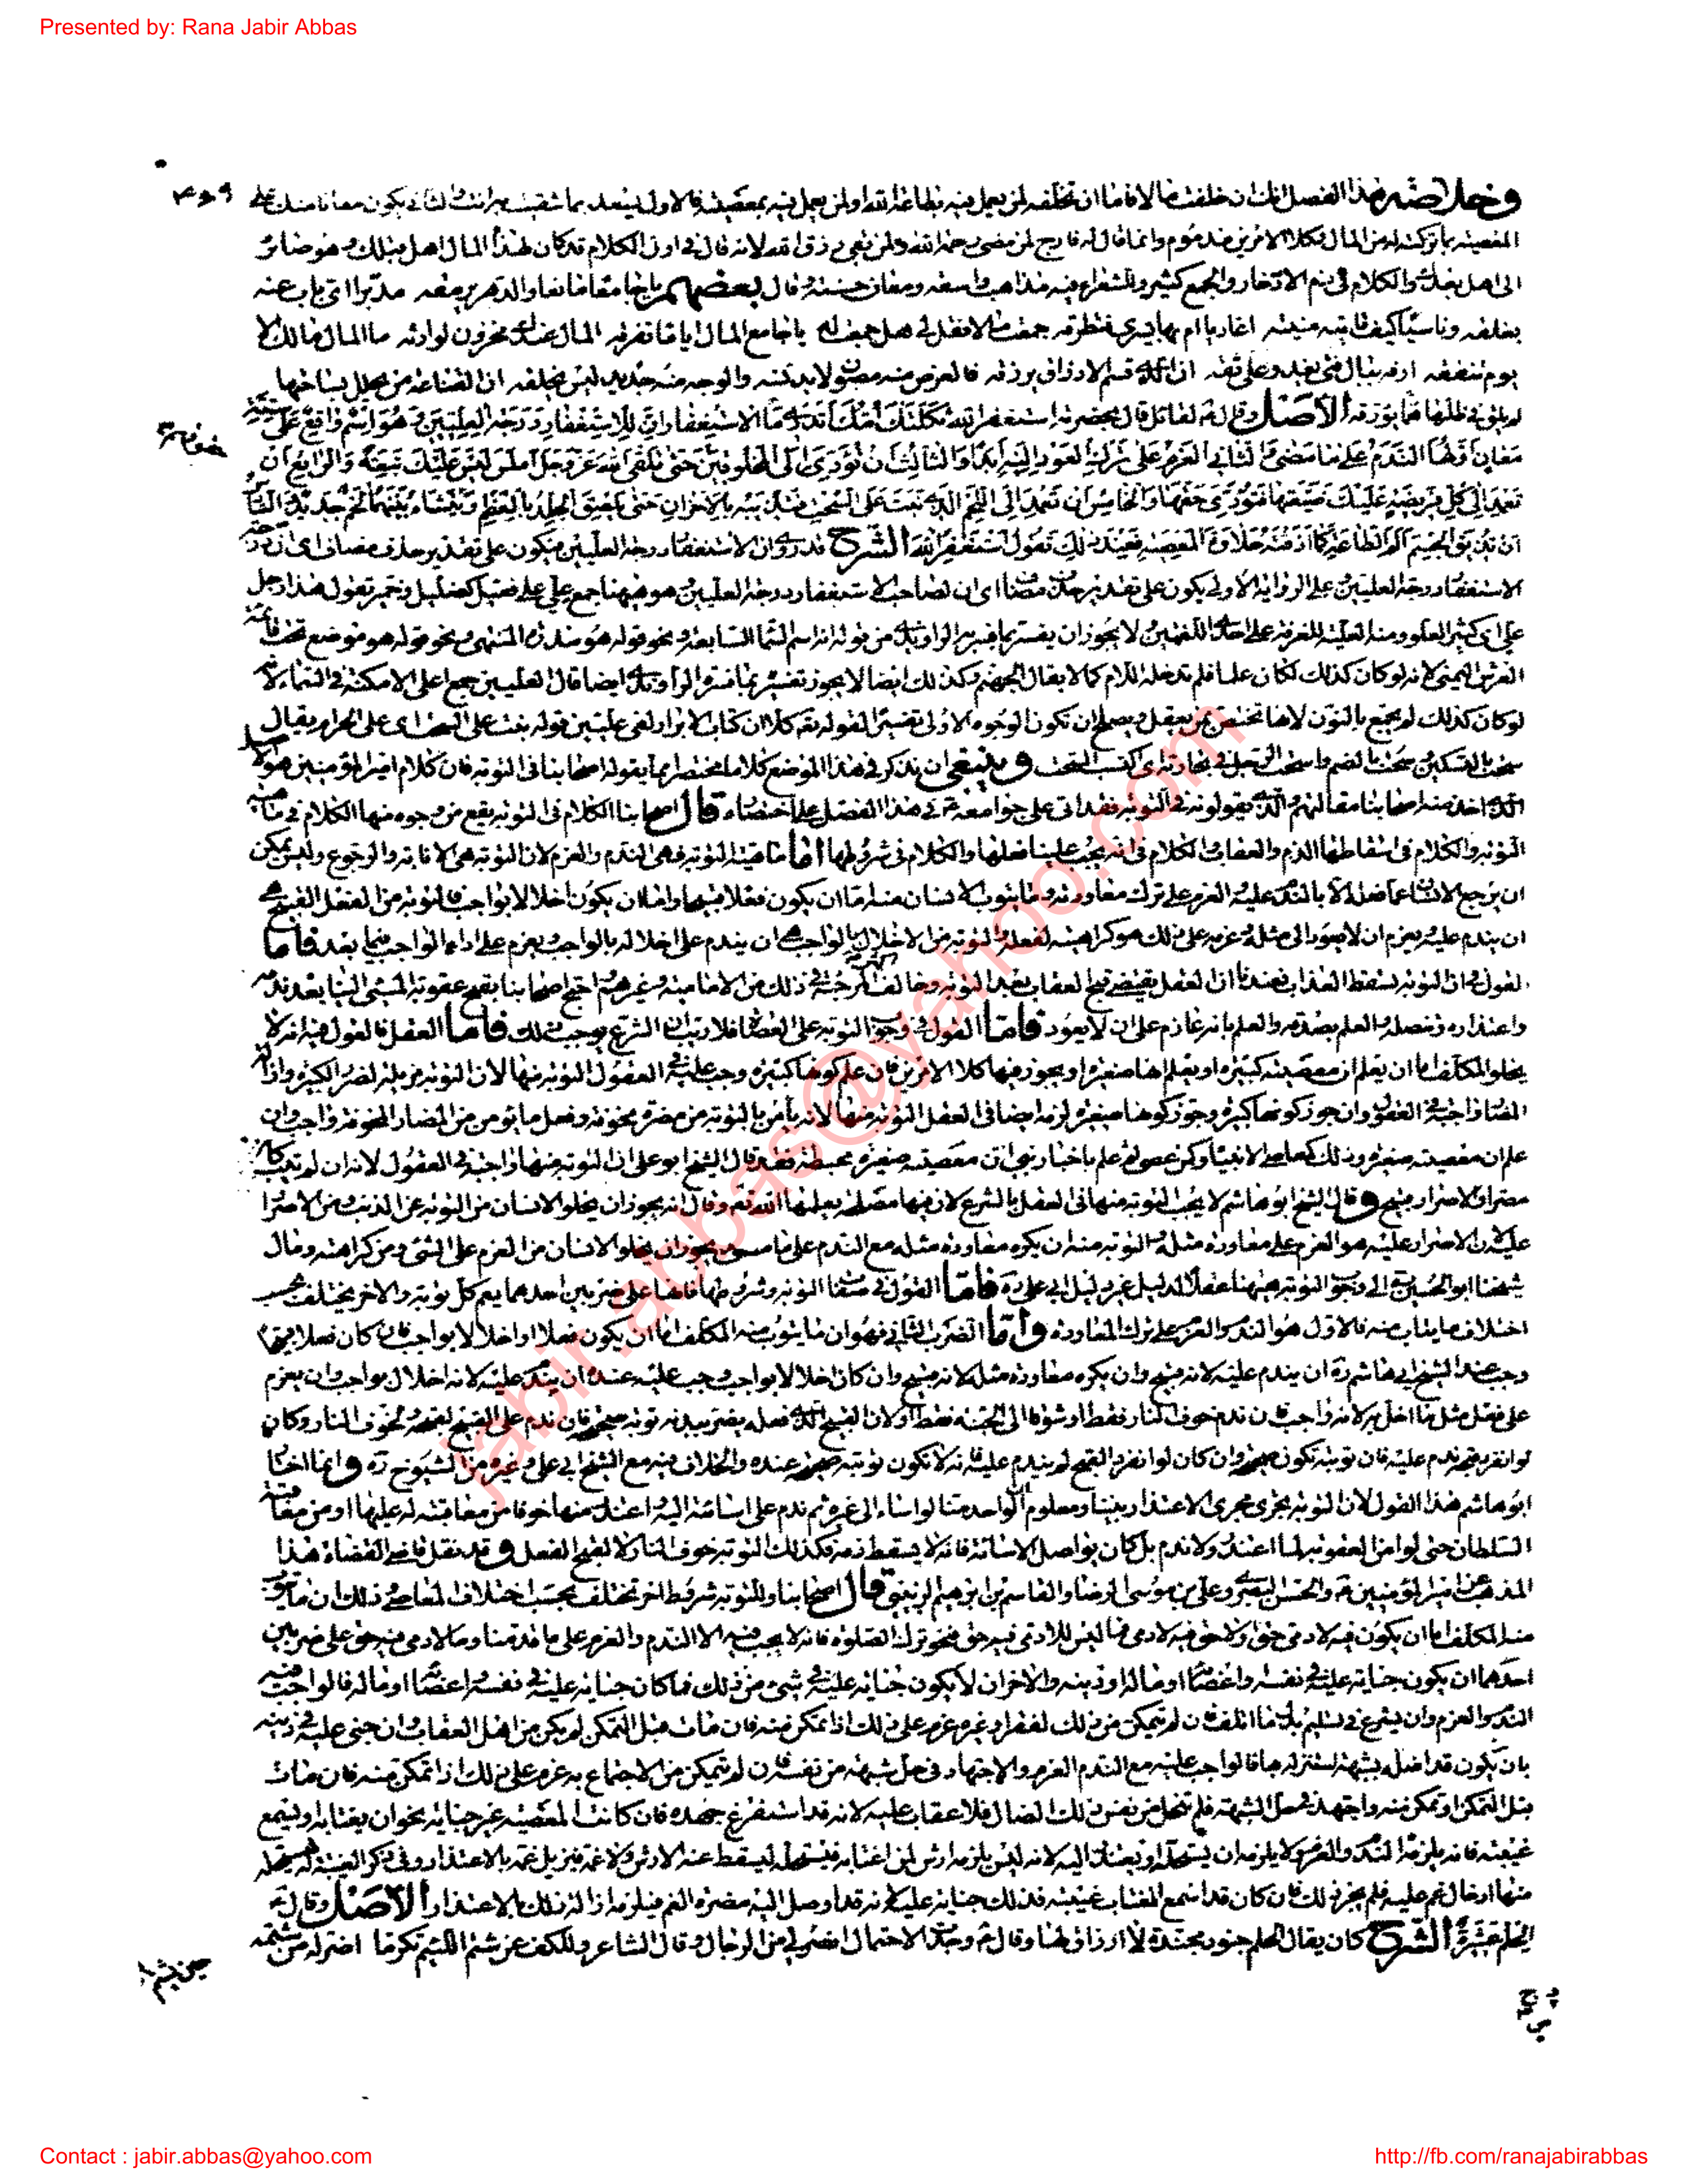 Presented by: Rana Jabir Abbas
وخلاصة هذا الفصل انك ان خلفت مالا فاما ان تخلفه لمن يعمل فيه بطاعة الله او لمن يعمل فيه بمعصيته فالاول يسعد بما شقيت به انت والثاني يكون معانا منك على
المعصية بما تركت له من المال وكلا الامرين مذموم وانما قال له فارج لمن مضى رحمة الله ولمن بقى رزق الله لانه قال في اول الكلام قد كان لهذا المال اهل قبلك وهو صائر
الى اهل بعدك والكلام في ذم الادخار والجمع كثير وللشعراء فيه مذاهب واسعة ومعان حسنة وقال بعضهم يا جامعا مانعا والدهر يرمقه مدبرا اى باب عنه
يغلقه وناسيا كيف تاتيه منيته اغاديا ام بها يسرى فتطرقه جمعت مالا فقل لى هل جمعت له يا جامع المال اياما تفرقه المال عندك مخزون لوارثه ما المال مالك الا
يوم تنفقه ارفه ببال فتى يغدو على ثقة ان الذى قسم الارزاق يرزقه فالعرض منه مصون لا يدنسه والوجه منه جديد ليس يخلقه ان القناعة من يحلل بساحتها
لم يلق في ظلها هما يؤرقه الاصل وقال ع لقائل قال بحضرته استغفر الله ثكلتك امك اتدرى ما الاستغفار ان للاستغفار درجة العليين وهو اسم واقع على ستة
معان اولها الندم على ما مضى والثانى العزم على ترك العود اليه ابدا والثالث ان تؤدى الى المخلوقين حقوقهم حتى تلقى الله عز وجل املس ليس عليك تبعة والرابع ان
تعمد الى كل فريضة عليك ضيعتها فتؤدى حقها والخامس ان تعمد الى اللحم الذى نبت على السحت فتذيبه بالاحزان حتى يلصق الجلد بالعظم وينشاء بينهما لحم جديد والسادس
ان تذيق الجسم الم الطاعة كما اذقته حلاوة المعصية فعند ذلك تقول استغفر الله الشرح قد روى ان الاستغفار درجة العليين فيكون على تقدير حذف مضاف اى ان درجة
الاستغفار درجة العليين وعلى الرواية الاولى يكون على تقدير حذف مضاف اى ان لصاحب الاستغفار درجة العليين وهو ههنا جمع على على فعيل كضليل وخمير تقول هذا رجل
على اى كثير العلو ومنه العلية للغرفة على احدى اللغتين ولا يجوز ان يفسر بما فسر به الراوندى من قوله انه اسم السماء السابعة ونحو قوله هو سدرة المنتهى ونحو قوله هو موضع تحت قائمة
العرش اليمنى لانه لو كان كذلك لكان علما فلم تدخله اللام كما لا يقال الجهنم وكذلك ايضا لا يجوز تفسيره بما فسره الراوندى ايضا قال العليين جمع اعلى الامكنة في السماء لانه
لو كان كذلك لم يجمع بالنون لانها تختص بمن يعقل ويصلح ان تكون الوجوه الاولى تفسيرا لقوله تعم كلا ان كتاب الابرار لفى عليين قوله نبت على السحت اى على الحرام يقال
سحت بالتسكين وسحت بالضم واسحت الرجل في تجارته اى كسب السحت وينبغى ان نذكر في هذا الموضع كلاما مختصرا مما يقوله اصحابنا في التوبة فان كلام امير المؤمنين هو الاصل
الذى اخذ منه اصحابنا مقالتهم والذى يقولونه في التوبة فقد اتى على جوامعه ع في هذا الفصل على اختصاره قال اصحابنا الكلام في التوبة يقع من وجوه منها الكلام في ماهية
التوبة والكلام في اسقاطها الذم والعقاب والكلام في انه يجب علينا فعلها والكلام في شروطها اما ماهية التوبة فهى الندم والعزم لان التوبة هى الانابة والرجوع وليس يمكن
ان يرجع الانسان عما فعله الا بالندم عليه والعزم على ترك معاودته وما يتوب الانسان منه اما ان يكون فعلا قبيحا واما ان يكون اخلالا بواجب فالتوبة من الفعل القبيح هى
ان يندم عليه ويعزم ان لا يعود الى مثله وعزمه على ذلك هو كراهيته لفعله والتوبة من الاخلال بالواجب هى ان يندم على اخلاله بالواجب ويعزم على اداء الواجب فيما بعد فاما
القول في ان التوبة تسقط العذاب فعندنا ان العقل يقتضى قبح العقاب بعد التوبة وخالف اكثر المرجئة في ذلك من الامامية وغيرهم واحتج اصحابنا بقبح عقوبة المسئ الينا بعد ندمه
واعتذاره وتنصله والعلم بصدقه والعلم بانه عازم على ان لا يعود فاما القول في وجوب التوبة على العصاة فلا ريب ان الشرع يوجب ذلك فاما العقل فالقول فيه انه لا
يخلو المكلف اما ان يعلم ان معصيته كبيرة او يعلم انها صغيرة او يجوز فيها كلا الامرين فان علم كونها كبيرة وجب عليه في العقول التوبة منها لان التوبة مزيلة لضرر الكبيرة وازالة
المضار واجبة في العقول وان جوز كونها كبيرة وجوز كونها صغيرة لزمه ايضا في العقل التوبة منها لانه يأمن بالتوبة من مضرة مخوفة وفعل ما يؤمن من المضار المخوفة واجب وان
علم ان معصيته صغيرة وذلك كمعاصى الانبياء وكمن عصى ثم علم باخبار نبى ان معصيته صغيرة محبطة فقد قال الشيخ ابو على ان التوبة منها واجبة في العقول لانه ان لم يتب كان
مصرا والاصرار قبيح وقال الشيخ ابو هاشم لا يجب التوبة منها في العقل بالشرع لان فيها مصلحة يعلمها الله تعم وقال انه يجوز ان يخلو الانسان من التوبة عن الذنب ومن الاصرار
عليه لان الاصرار عليه هو العزم على معاودة مثله والتوبة منه ان يكره معاودة مثله مع الندم على ما مضى ويجوز ان يخلو الانسان من العزم على الشئ ومن كراهته ومال
شيخنا ابو الحسين ره الى وجوب التوبة ههنا عقلا لدليل غير دليل ابى على ره فاما القول في صفات التوبة وشروطها فانها على ضربين احدهما يعم كل توبة والاخر يختلف بحسب
اختلاف ما يتاب منه فالاول هو الندم والعزم على ترك المعاودة واما الضرب الثانى فهو ان ما يتوب منه المكلف اما ان يكون فعلا او اخلالا بواجب فان كان فعلا قبيحا
وجب عند الشيخ ابى هاشم ره ان يندم عليه لانه قبيح وان يكره معاودة مثله لانه قبيح وان كان اخلالا بواجب وجب عليه عنده ان يندم عليه لانه اخلال بواجب وان يعزم
على فعل مثل ما اخل به لانه واجب فان ندم خوف النار فقط او شوقا الى الجنة فقط او لان القبيح الذى فعله يضر ببدنه توبته صحيحة وان ندم على القبيح لقبحه ولخوف النار وكان
لو انفرد قبحه ندم عليه فان توبته تكون صحيحة وان كان لو انفرد القبح لم يندم عليه فانه لا تكون توبته صحيحة عنده والخلاف فيه مع الشيخ ابى على وغيره من الشيوخ ره وانما اختار
ابو هاشم هذا القول لان التوبة تجرى مجرى الاعتذار بيننا ومعلوم ان الواحد منا لو اساء الى غيره ثم ندم على اسائته اليه واعتذر منها خوفا من معاقبته له عليها او من معاقبة
السلطان حتى لو امن العقوبة لما اعتذر ولا ندم بل كان يواصل الاسائة فانه لا يسقط ذمه فكذلك التوبة خوف النار لا لقبح الفعل وقد نقل قاضى القضاة هذا
المذهب عن امير المؤمنين ع والحسن البصرى وعلى بن موسى الرضا والقاسم بن ابراهيم الزينبى قال اصحابنا وللتوبة شروط اخر تختلف بحسب اختلاف المعاصى وذلك ان ما يتوب
منه المكلف اما ان يكون فيه لادمى حق اولا حق فيه لادمى فما ليس للادمى فيه حق فنحو ترك الصلوة فانه لا يجب فيه الا الندم والعزم على ما قدمنا وما لادمى فيه حق على ضربين
احدهما ان يكون جناية عليه في نفسه واعضائه او ماله او دينه والاخر ان لا يكون جناية عليه في شئ من ذلك فما كان جناية عليه في نفسه او اعضائه او ماله فالواجب فيه
الندم والعزم وان يشرع في تسليم بدل ما اتلف فان لم يتمكن من ذلك لفقر او غيره عزم على ذلك اذا تمكن منه فان مات قبل التمكن لم يكن من اهل العقاب وان جنى عليه في دينه
بان يكون قد اضله بشبهة استزله بها فالواجب عليه مع الندم والعزم والاجتهاد في حل شبهته من نفسه فان لم يتمكن من الاجتماع به عزم على ذلك اذا تمكن منه فان مات
قبل التمكن او تمكن منه واجتهد في حل الشبهة فلم تنحل من نفس ذلك الضال فلا عقاب عليه لانه قد استفرغ جهده فان كانت المعصية غير جناية نحو ان يغتابه او يسمع
غيبته فانه يلزمه الندم والعزم ولا يلزمه ان يستحله او يعتذر اليه لانه ليس يلزمه ارش لمن اغتابه فيستحله ليسقط عنه الارش ولا غمه فيزيل غمه بالاعتذار وفي ذكر الغيبة له ليستحله
منها ادخال غم عليه فلم يجز ذلك فان كان قد اسمع المغتاب غيبته فذلك جناية عليه لانه قد اوصل اليه مضرة الغم فيلزمه ازالة ذلك بالاعتذار الاصل وقال ع
الحلم عشيرة الشرح كان يقال الحلم جنود مجندة لا ارزاق لها وقال ع وجدت الاحتمال انصر لى من الرجال وقال الشاعر وللكف عن شتم اللئيم تكرما اضر له من شتمه
حين يشتم
jabir.abbas@yahoo.com
Contact : jabir.abbas@yahoo.com
http://fb.com/ranajabirabbas